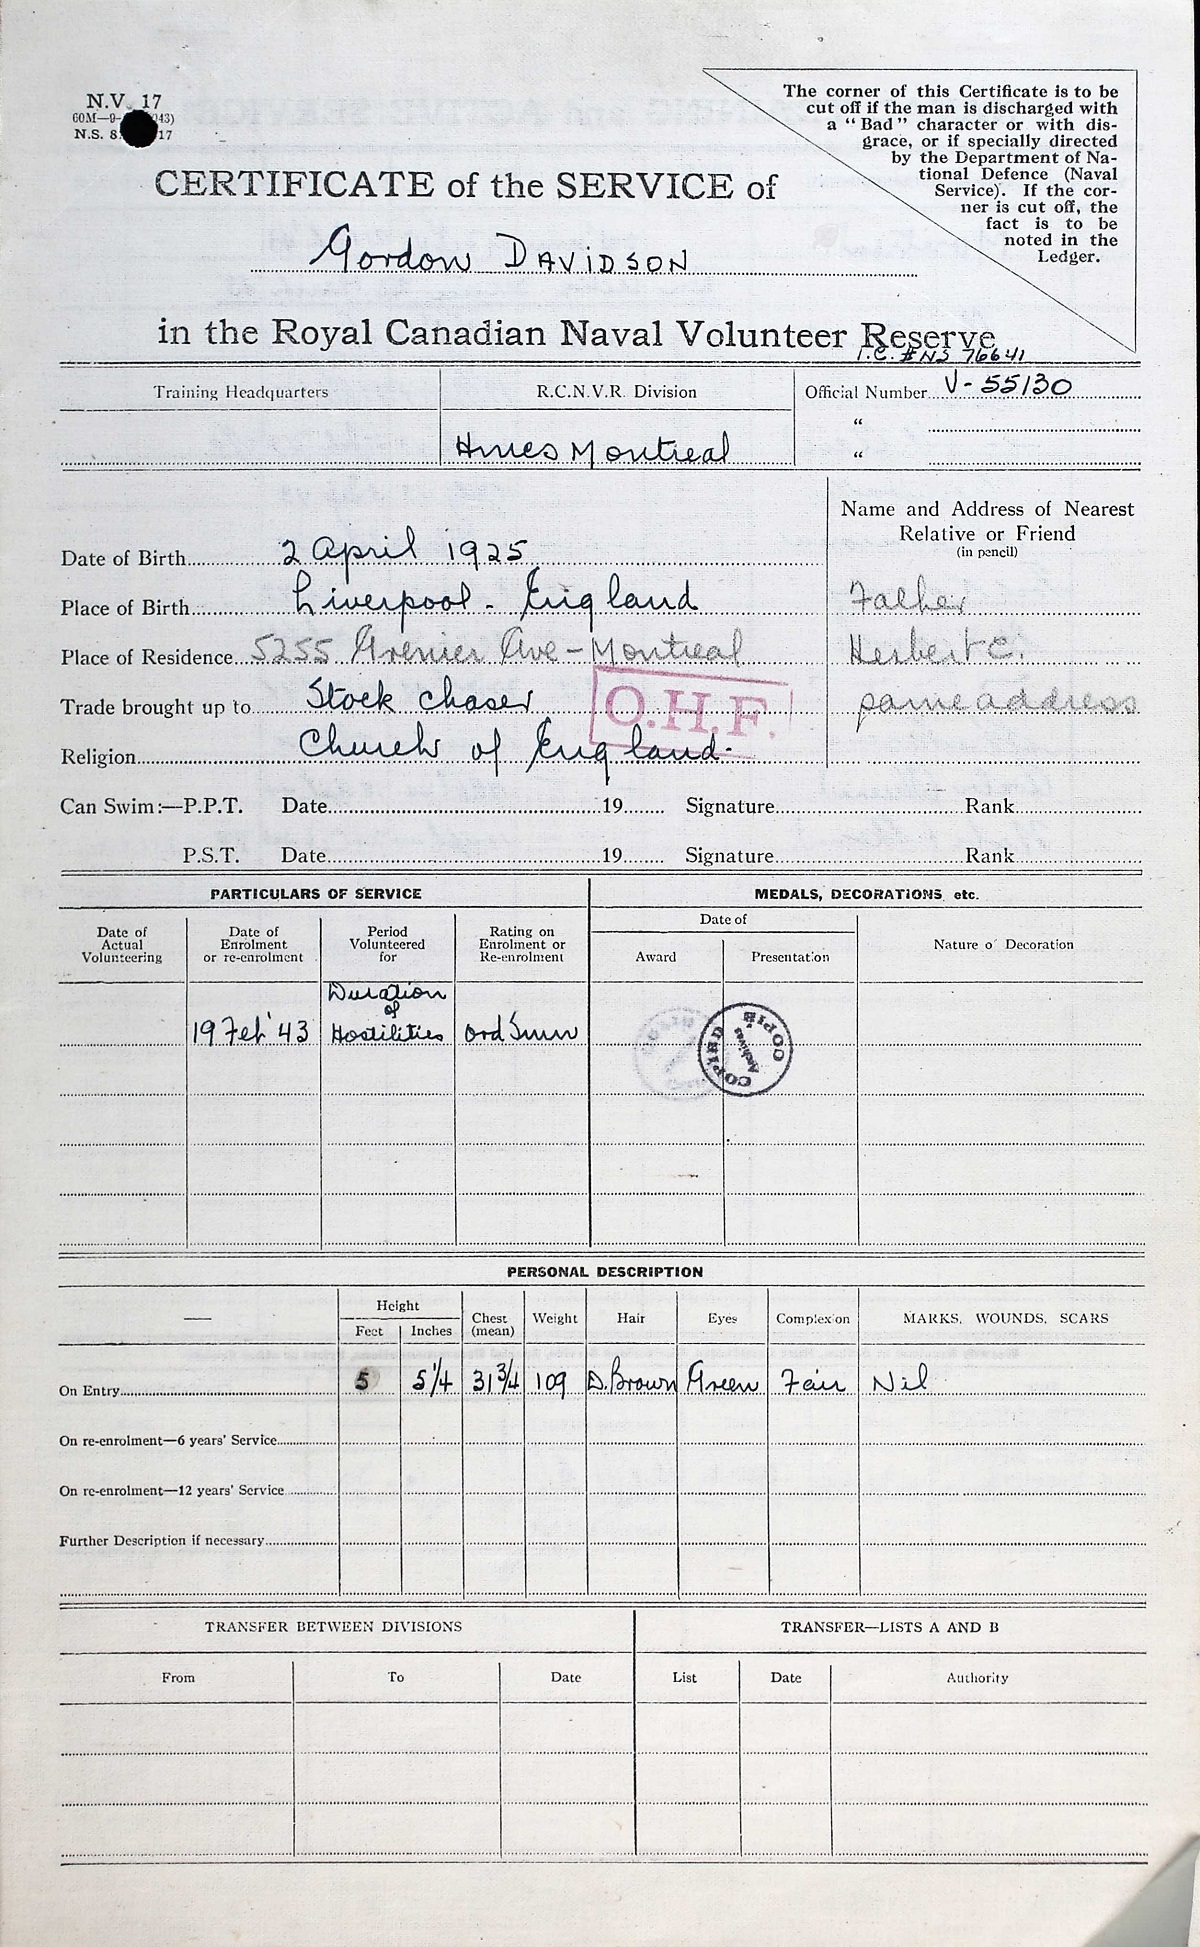 N.V. 17
60M—9- 43)
N.S. 8 17
The corner of this Certificate is to be
cut off if the man is discharged with
a "Bad" character or with dis-
grace, or if specially directed
by the Department of Na-
tional Defence (Naval
Service). If the cor-
ner is cut off, the
fact is to be
noted in the
Ledger.
CERTIFICATE of the SERVICE of
Gordon DAVIDSON
in the Royal Canadian Naval Volunteer Reserve
I.C. # NS 76641
Training Headquarters R.C.N.V.R. Division Official Number V-55130
"
Hmcs Montreal "
Name and Address of Nearest
Relative or Friend
(in pencil)
Date of Birth 2 April 1925
Place of Birth Liverpool - England Father
Place of Residence 5255 Grenier Ave - Montreal Herbert C.
Trade brought up to Stock chaser same address
O.H.F.
Religion Church of England.
Can Swim:—P.P.T. Date 19 Signature Rank
P.S.T. Date 19 Signature Rank
PARTICULARS OF SERVICE MEDALS, DECORATIONS, etc.
Date of Actual Volunteering Date of Enrolment or re-enrolment Period Volunteered for Rating on Enrolment or Re-enrolment Date of Award Presentation Nature o' Decoration
19 Feb' 43 Duration of Hostilities Ord Smn
COPIED Archives COPIÉ
PERSONAL DESCRIPTION
— Height Feet Inches Chest (mean) Weight Hair Eyes Complexion MARKS, WOUNDS, SCARS
On Entry 5 5 1/4 31 3/4 109 D. Brown Green Fair Nil
On re-enrolment—6 years' Service
On re-enrolment—12 years' Service
Further Description if necessary
TRANSFER BETWEEN DIVISIONS TRANSFER—LISTS A AND B
From To Date List Date Authority